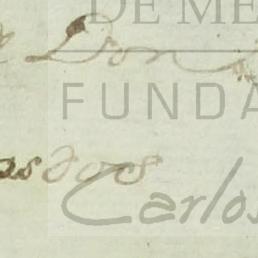 DE ME
Don
FUNDA
asdos
Carlos